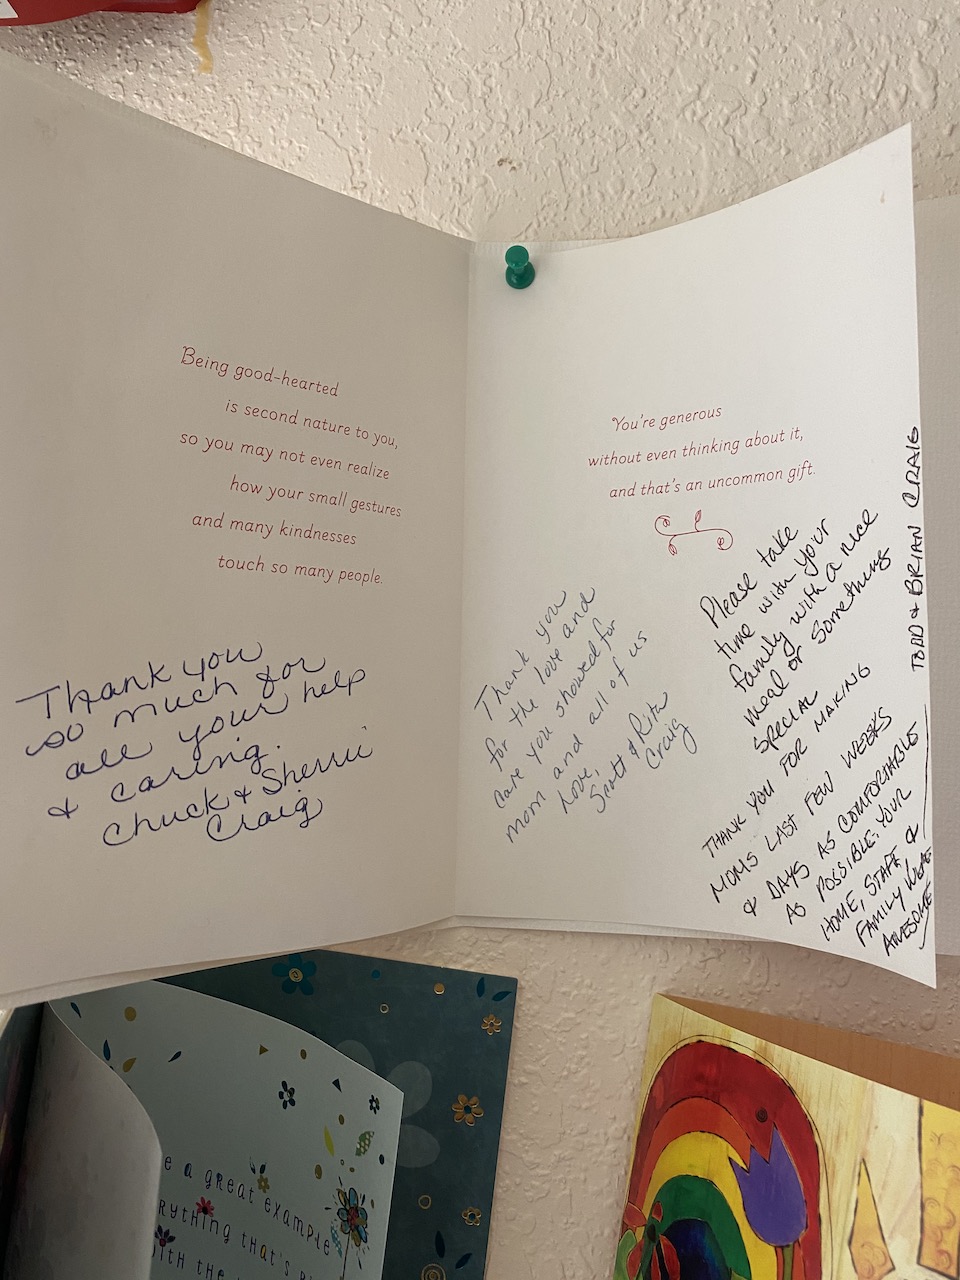 Being good-hearted
is second nature to you,
so you may not even realize
how your small gestures
and many kindnesses
touch so many people.
Thank you
so much for
all your help
& caring.
Chuck & Sherrii
Craig
You're generous
without even thinking about it,
and that's an uncommon gift.
Thank you
for the love and
care you showed for
mom and all of us
Love,
Scott & Rita
Craig
Please take
time with your
family with a nice
meal or something
special
THANK YOU FOR MAKING
MOMS LAST FEW WEEKS
& DAYS AS COMFORTABLE
AS POSSIBLE. YOUR
HOME, STAFF &
FAMILY WERE
AWESOME
TODD & BRIAN CRAIG
e a great example
rything that's
ith the